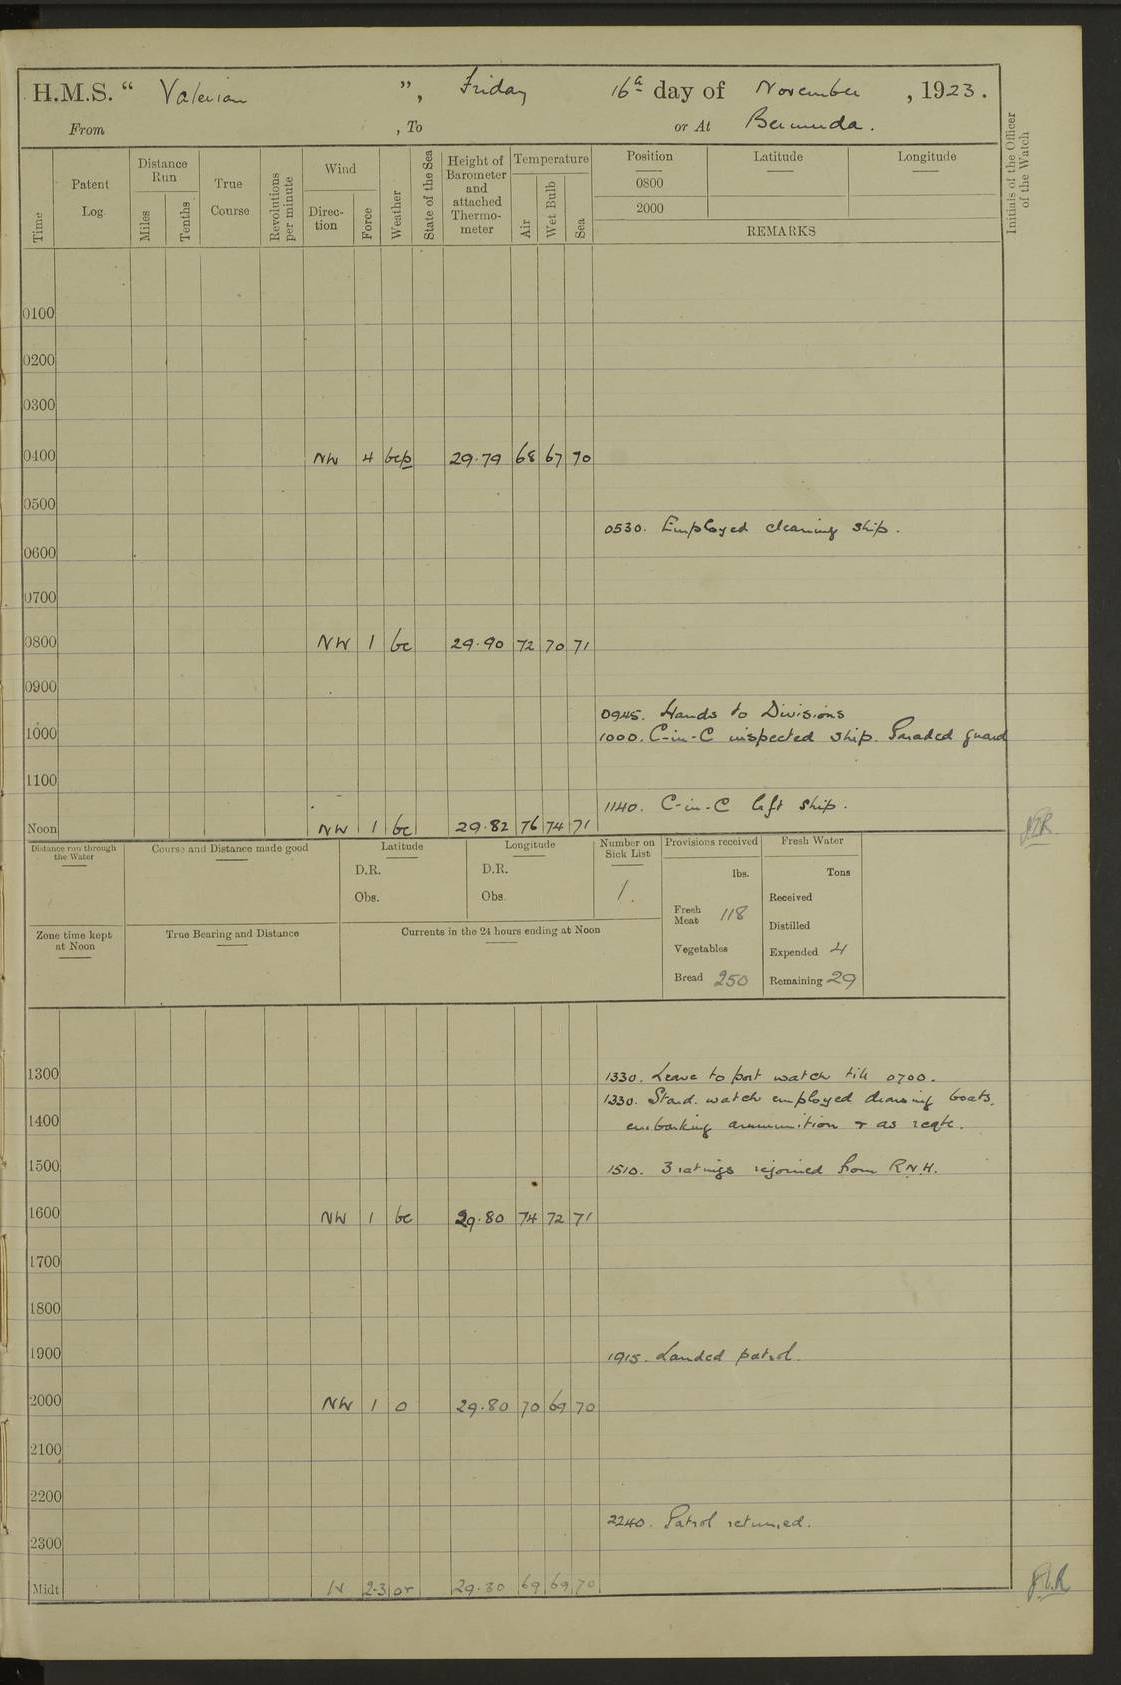 H.M.S. “ Valerian ”, Friday 16th day of November , 1923.
From , To or At Bermuda.
Time
Patent Log
Distance Run
Miles
Tenths
True Course
Revolutions per minute
Wind
Direc- tion
Force
Weather
State of the Sea
Height of Barometer and attached Thermo- meter
Temperature
Air
Wet Bulb
Sea
Position
0800
2000
Latitude
Longitude
REMARKS
Initials of the Officer of the Watch
0100
0200
0300
0400 NW 4 bcp 29.79 68 67 70
0500
0530. Employed cleaning ship.
0600
0700
0800 NW 1 bc 29.90 72 70 71
0900
0945. Hands to Divisions
1000 1000. C-in-C inspected ship. Paraded guard
1100
1140. C-in-C left ship.
Noon NW 1 bc 29.82 76 74 71
Distance run through the Water
Course and Distance made good
Latitude
D.R.
Obs.
Longitude
D.R.
Obs.
Number on Sick List
1.
Provisions received
lbs.
Fresh Meat 118
Vegetables
Bread 250
Fresh Water
Tons
Received
Distilled
Expended 4
Remaining 29
Zone time kept at Noon
True Bearing and Distance
Currents in the 24 hours ending at Noon
1300 1330. Leave to port watch till 0700.
1330. Starbd. watch employed cleaning boats,
1400 embarking ammunition & as reqte.
1500 1510. 3 ratings rejoined from R.N.H.
1600 NW 1 bc 29.80 74 72 71
1700
1800
1900 1915. Landed patrol.
2000 NW 1 o 29.80 70 69 70
2100
2200
2240. Patrol returned.
2300
Midt N 2-3 or 29.80 69 69 70